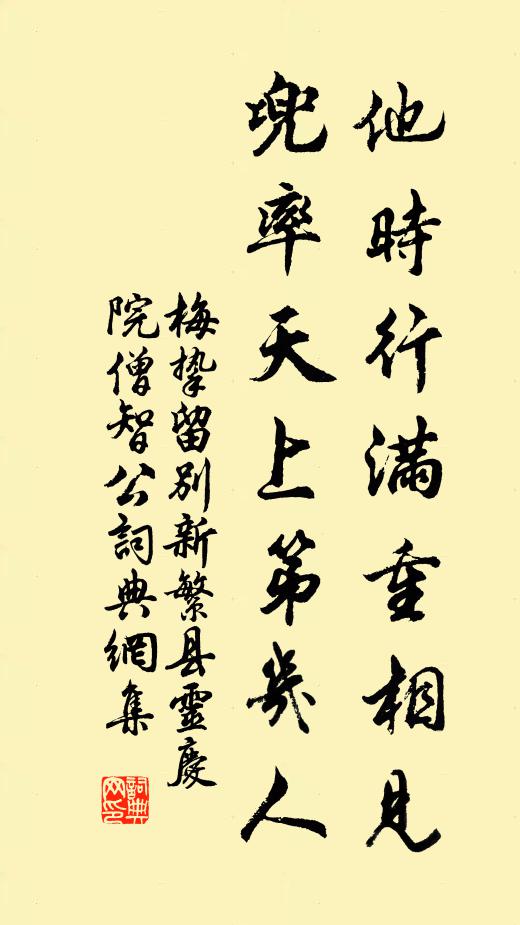 他時行滿重相見
兜率天上第幾人
梅摯留別新繁县靈慶
院僧智公詞典網集
詞典
网印